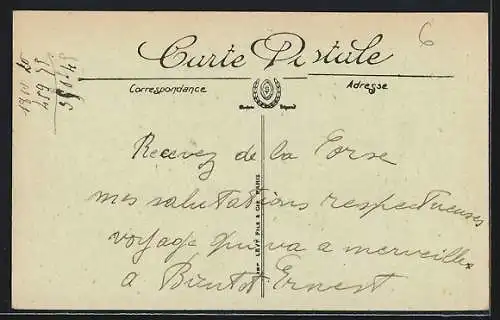 Carte Postale
Correspondance
Adresse
6
Recevez de la Corse
mes salutations respectueuses
voyage qui va a merveille
a Bientot Ernest
LEVY FILS & CIE PARIS